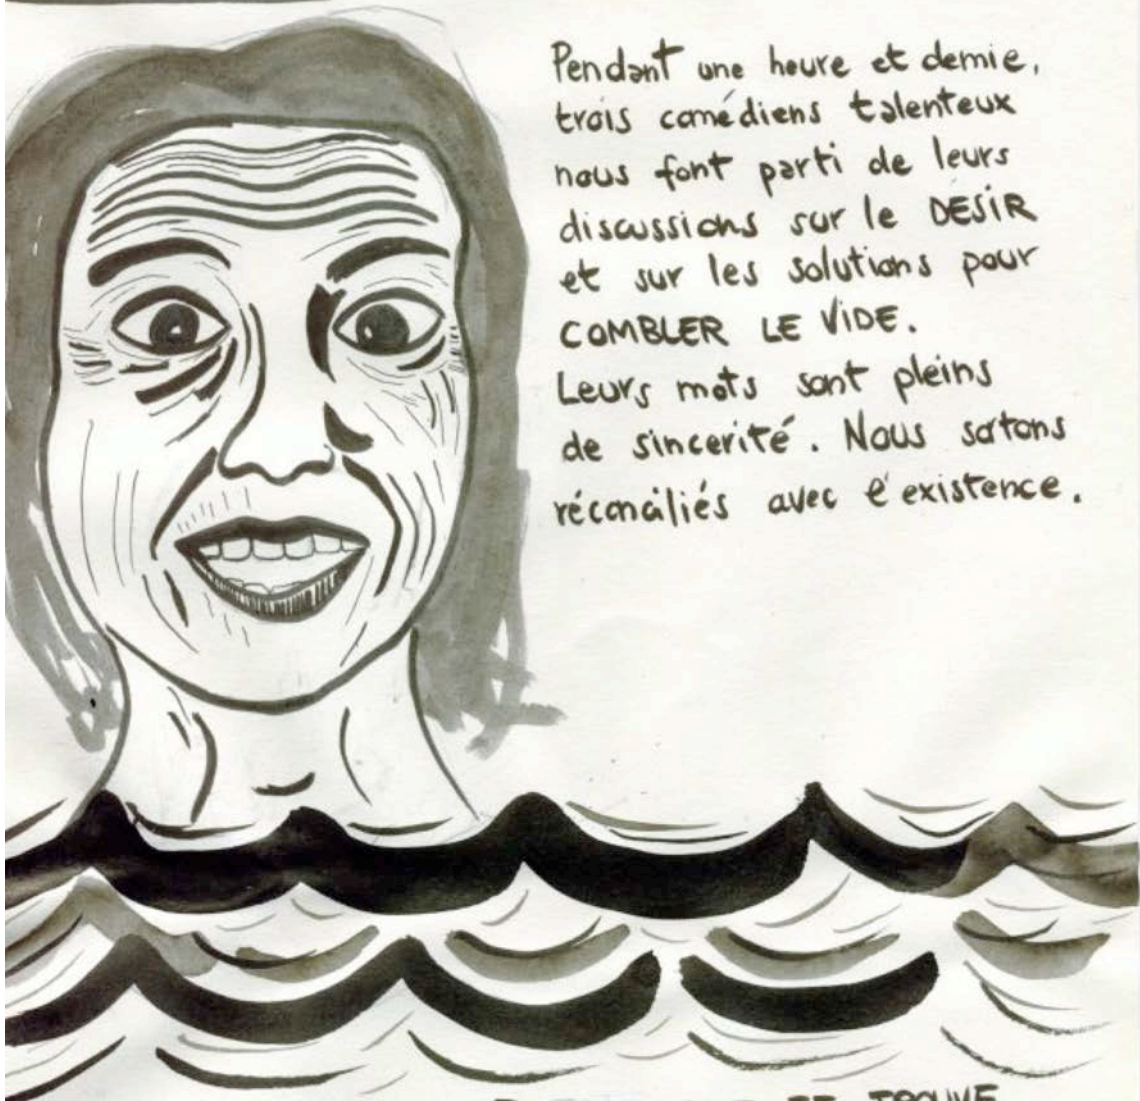 Pendant une heure et demie,
trois comédiens talenteux
nous font parti de leurs
discussions sur le DÉSIR
et sur les solutions pour
COMBLER LE VIDE.
Leurs mots sont pleins
de sincerité. Nous sortons
réconciliés avec l'existence.
ET TROUVE